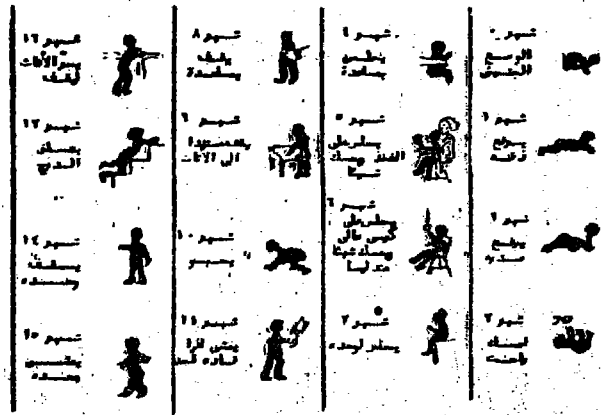 شهر ٠
الوضع
الجنيني
شهر ١
يرفع
ذقنه
شهر ٢
يرفع
صدره
شهر ٣
شهر ٤
يجلس
بمساعدة
شهر ٥
يجلس على
الفخذ ويمسك
شيئا
شهر ٦
يجلس على
كرسي عالي
ويمسك شيئا
متدليا
شهر ٧
يجلس لوحده
شهر ٨
يقف
بمساعدة
شهر ٩
يقف مستندا
الى الأثاث
شهر ١٠
يحبو
شهر ١١
يمشي اذا
قاده احد
شهر ١٢
الأثاث
ليقف
شهر ١٣
يتسلق
الدرج
شهر ١٤
يقف
وحده
شهر ١٥
يمشي
وحده